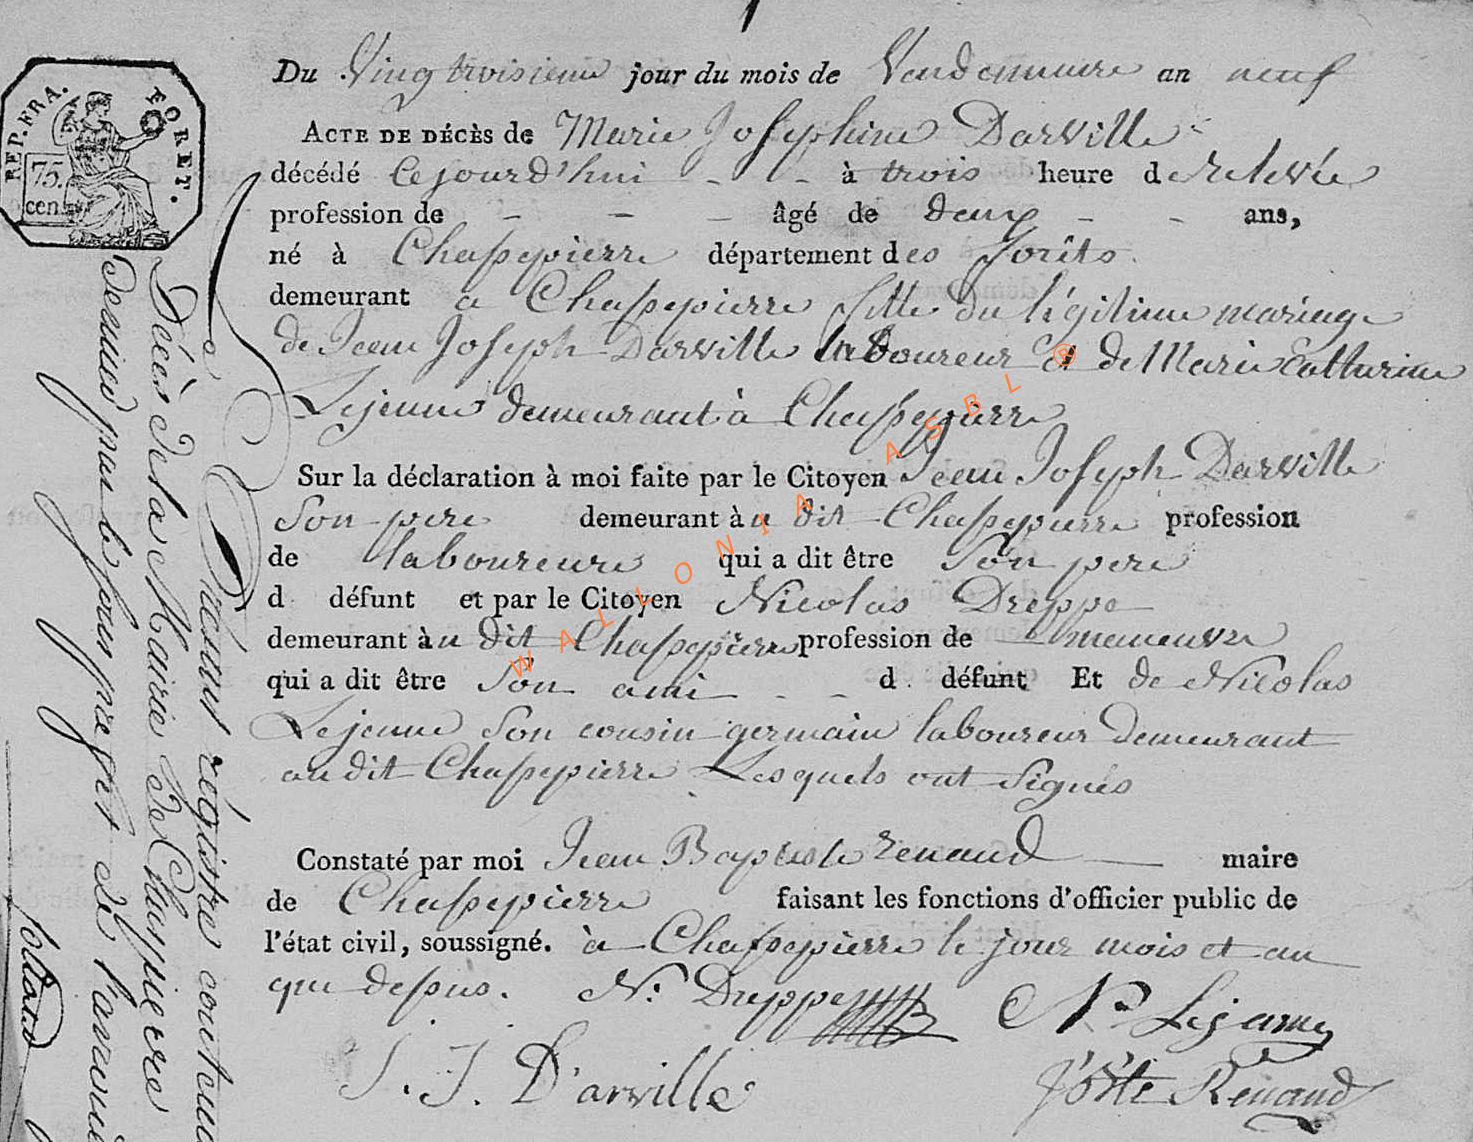 Du Vingtroisieme jour du mois de Vendemiaire an neuf
ACTE DE DÉCÈS de Marie Josephine Darville
décédé Cejourd'hui - - à trois heure de relevée
profession de - - - âgé de deux - - ans,
né à Chassepierre département des forêts
demeurant a Chassepierre fille du légitime mariage
de Jean Joseph Darville laboureur et de Marie Catherine
Lejeune demeurant à Chassepierre
Sur la déclaration à moi faite par le Citoyen Jean Joseph Darville
Son pere demeurant àu dit Chassepierre profession
de laboureure qui a dit être Son pere
d défunt et par le Citoyen Nicolas Dreppe
demeurant àu dit Chassepierre profession de maneuvre
qui a dit être Son ami - - d défunt Et de Nicolas
Lejeune Son cousin germain laboureur demeurant
audit Chassepierre Lesquels ont signés
Constaté par moi Jean Baptiste renaud maire
de Chassepierre faisant les fonctions d'officier public de
l'état civil, soussigné. à Chassepierre le jour mois et an
que dessus. N: Dreppe N Lejeune
J. J. D'arville J Bte Renaud
REP. FRA. FORET.
75.
cen.
présent régistre contenu
Décès de la Mairie de Chaspierre
par le sous prefet de
WALLONIA ASBL ®